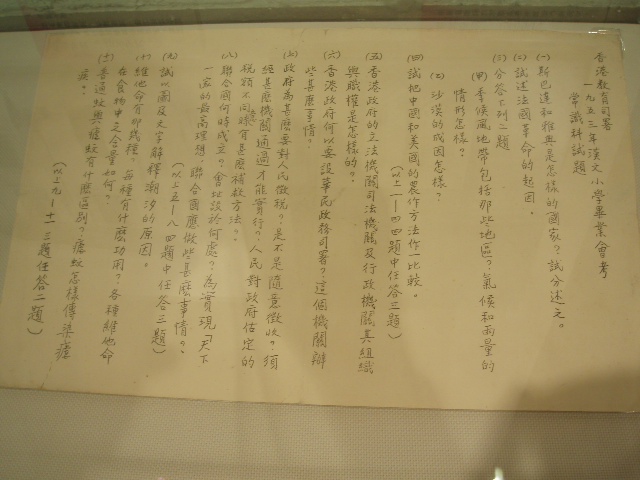 香港教育司署
一九五三年漢文小學畢業會考
常識科試題
(一) 斯巴達和雅典是怎樣的國家？試分述之。
(二) 試述法國革命的起因。
(三) 分答下列二題
(甲) 季候風地帶包括那些地區？氣候和雨量的
情形怎樣？
(乙) 沙漠的成因怎樣？
(四) 試把中國和美國的農作方法作一比較。
(以上一－四四題中任答三題)
(五) 香港政府的立法機關司法機關及行政機關其組織
與職權是怎樣的？
(六) 香港政府何以要設華民政務司署？這個機關辦
些甚麼事情？
(七) 政府為甚麼要對人民徵稅？是不是隨意徵收？須
經甚麼機關通過才能實行？人民對政府估定的
稅額不同意有甚麼補救方法？
(八) 聯合國何時成立？會址設於何處？為實現「天下
一家」的最高理想，聯合國應做些甚麼事情？
(以上五－八四題中任答三題)
(九) 試以圖及文字解釋潮汐的原因。
(十) 維他命有那幾種？每種有什麼功用？各種維他命
在食物中之含量如何？
(十一) 普通蚊與瘧蚊有什麼區別？瘧蚊怎樣傳染瘧
疾？
(以上九－十一三題任答二題)